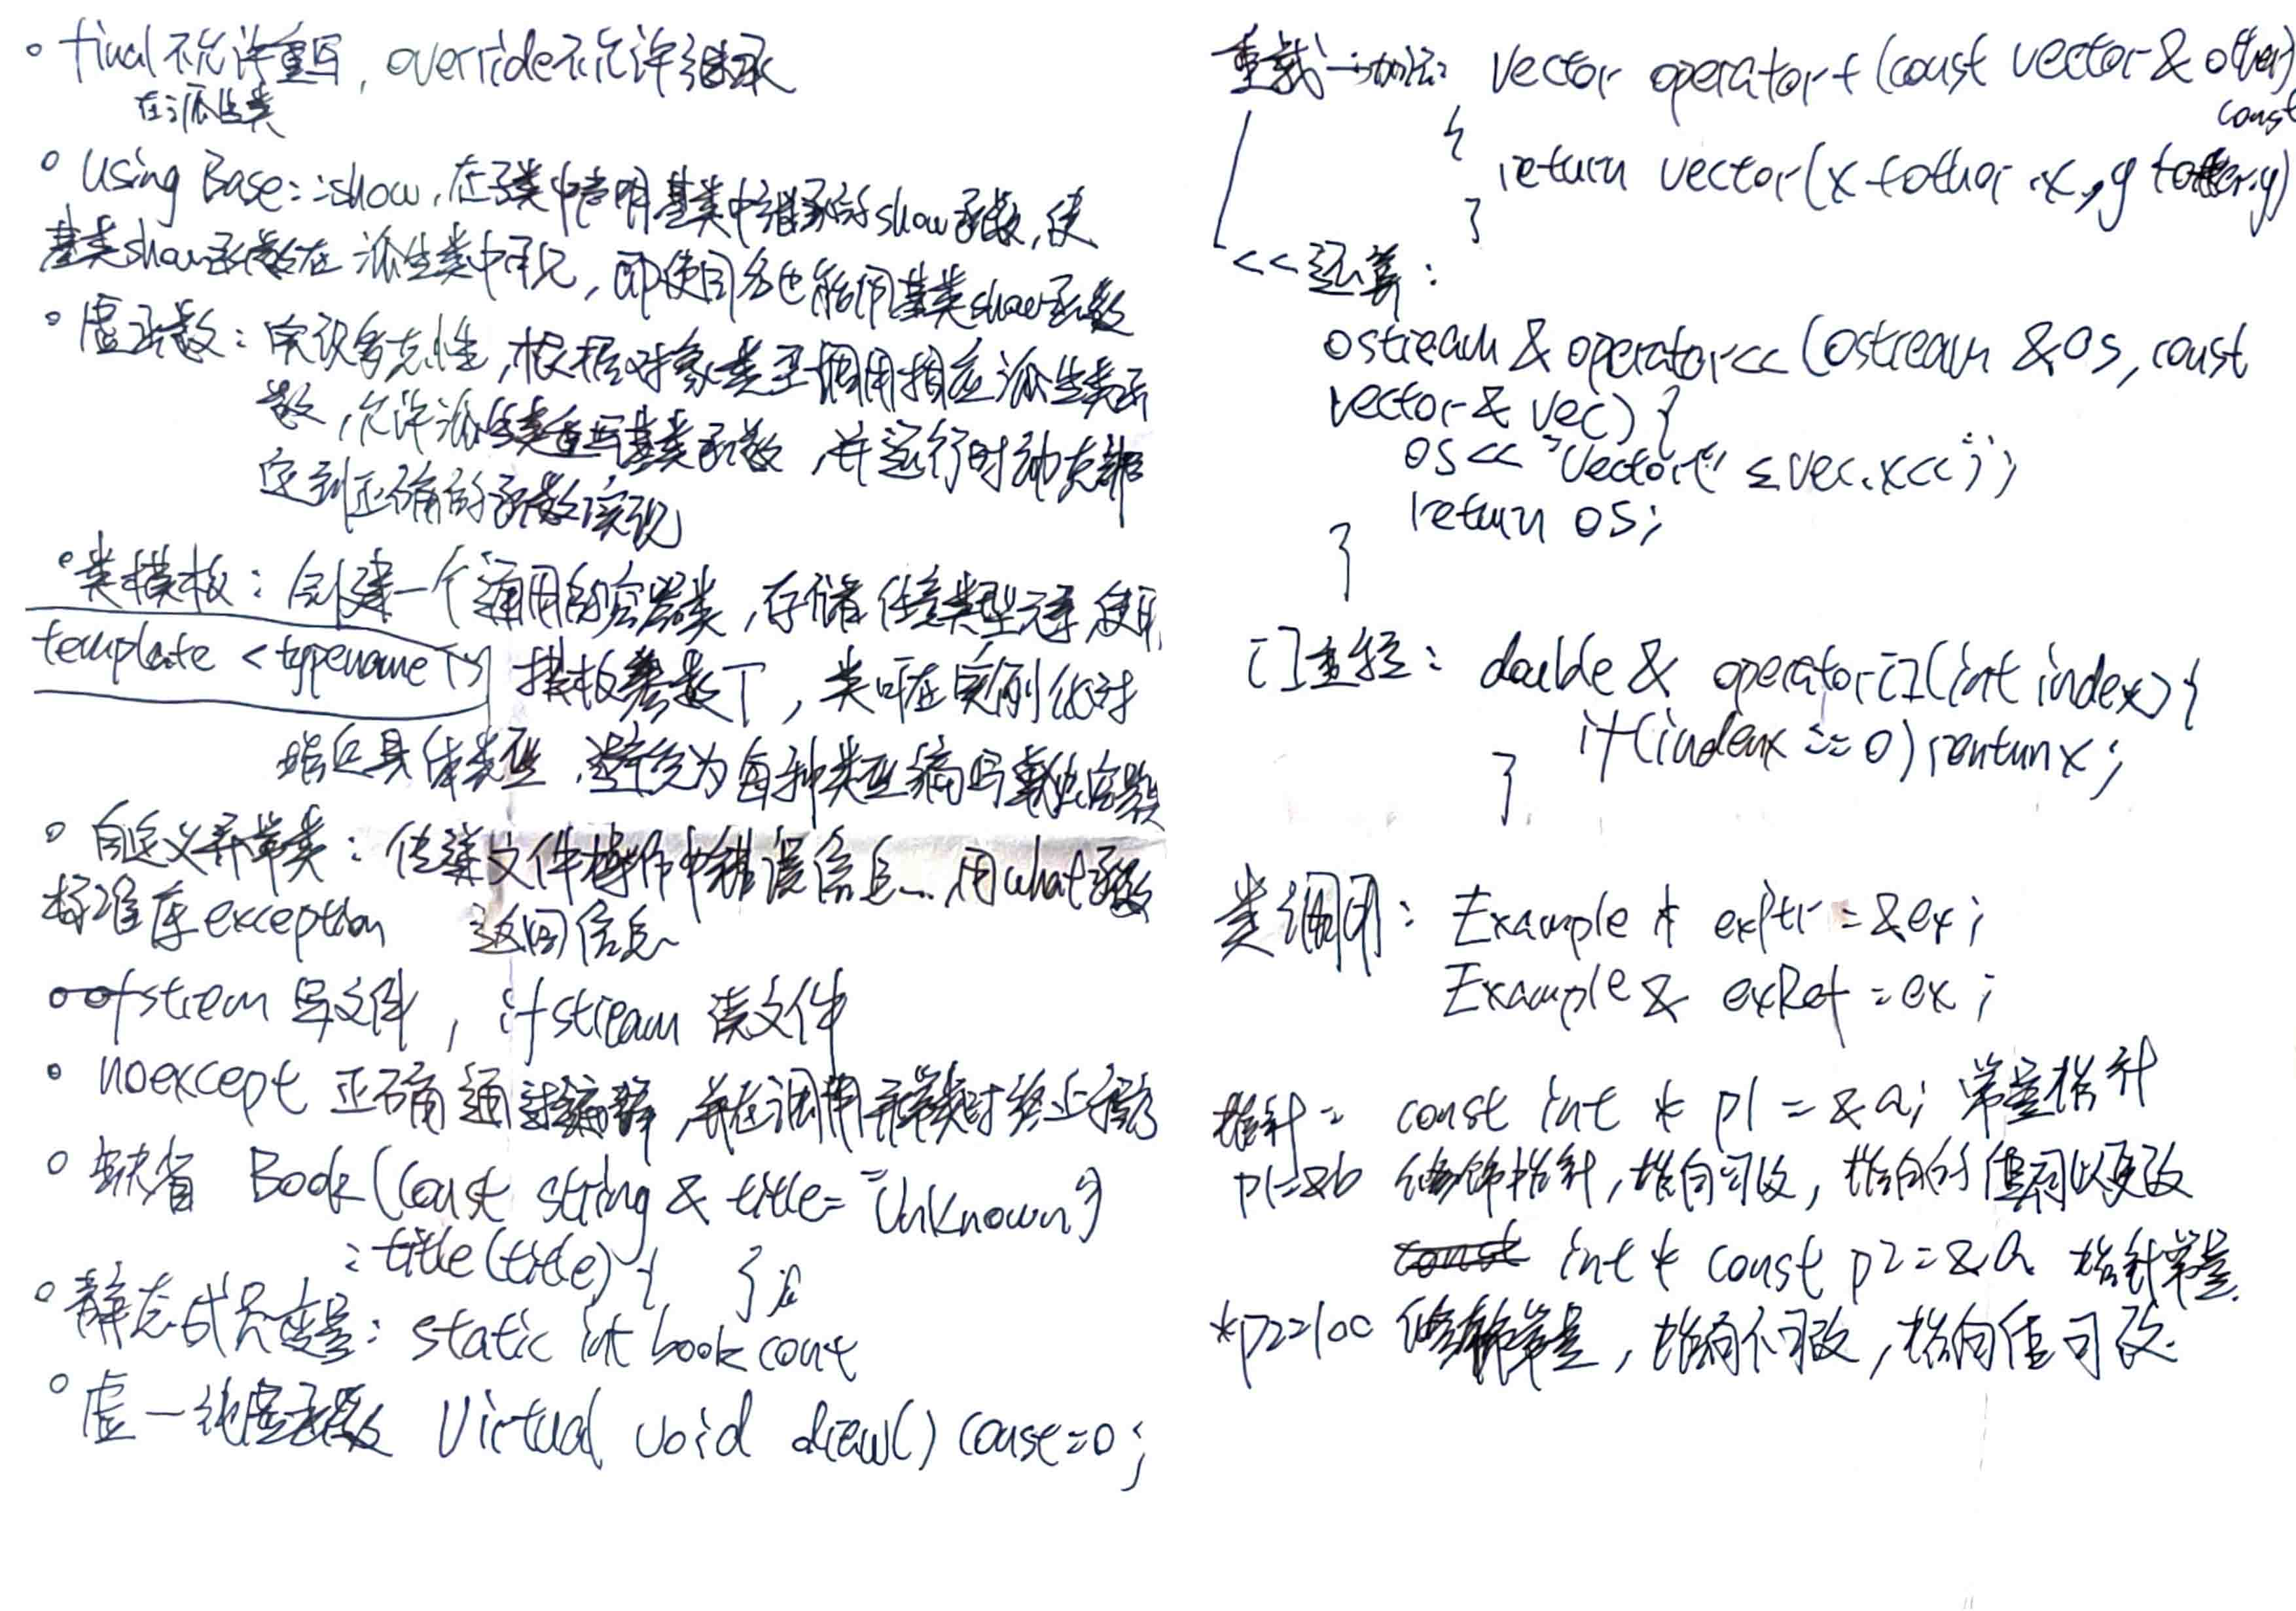 。final不允许重写，override不允许继承
在派生类
。using Base::show，在子类中声明基类中继承的show函数，使
基类show函数在派生类中可见，即使同名也能用基类show函数
。虚函数：实现多态性，根据对象类型调用相应派生类函
数，允许派生类重写基类函数，并运行时动态绑
定到正确的函数实现
。类模板：创建一个通用的容器类，存储任意类型元素，使用
template <typename T> 模板参数T，类可在实例化时
指定具体类型，避免为每种类型编写单独容器类
。自定义异常类：传递文件操作中错误信息，用what函数
标准库exception 返回信息
。ofstream 写文件，ifstream 读文件
。noexcept 正确通过编译，并在调用异常类时终止程序
。缺省 Book(const string & title="Unknown")
:title(title){ }
。静态成员变量：static int bookcout
。虚—纯虚函数 Virtual void draw() const=0;
重载—加法 Vector operator+(const vector& other)
const
{
return vector(x+other.x,y+other.y)
}
<<运算：
ostream & operator<<(ostream &os, const
vector& vec){
os<<"Vector(" <<vec.x<<")";
return os;
}
[]重载：double & operator[](int index){
if(index==0)return x;
}
类调用：Example * exPtr=&ex;
Example & exRef=ex;
指针= const int * p1=&a; 常量指针
p1=&b 修饰指针，指向可改，指向的值可以更改
int * const p2=&a 指针常量.
*p2=100 修饰常量，指向不可改，指向值可改.